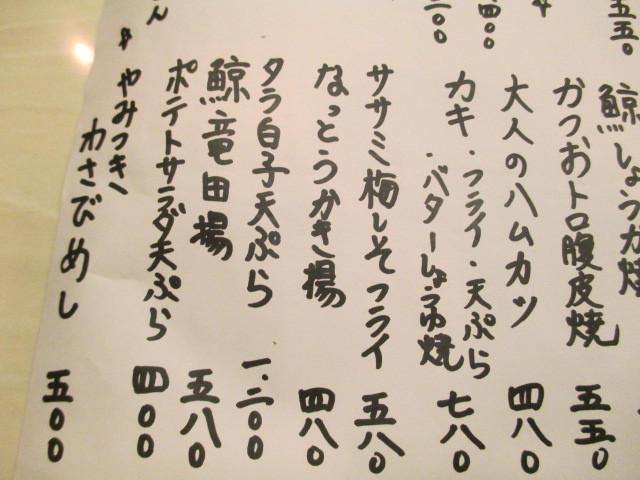 五五〇
鯨しょうが焼
かつおトロ腹皮焼 五五〇
大人のハムカツ 四八〇
四〇〇
カキ・フライ・天ぷら
・バターしょうゆ焼 七八〇
二〇〇
ササミ梅しそフライ 五八〇
なっとうかき揚 四八〇
タラ白子天ぷら 一.二〇〇
鯨竜田揚 五八〇
ポテトサラダ天ぷら 四〇〇
やみつき
わさびめし 五〇〇